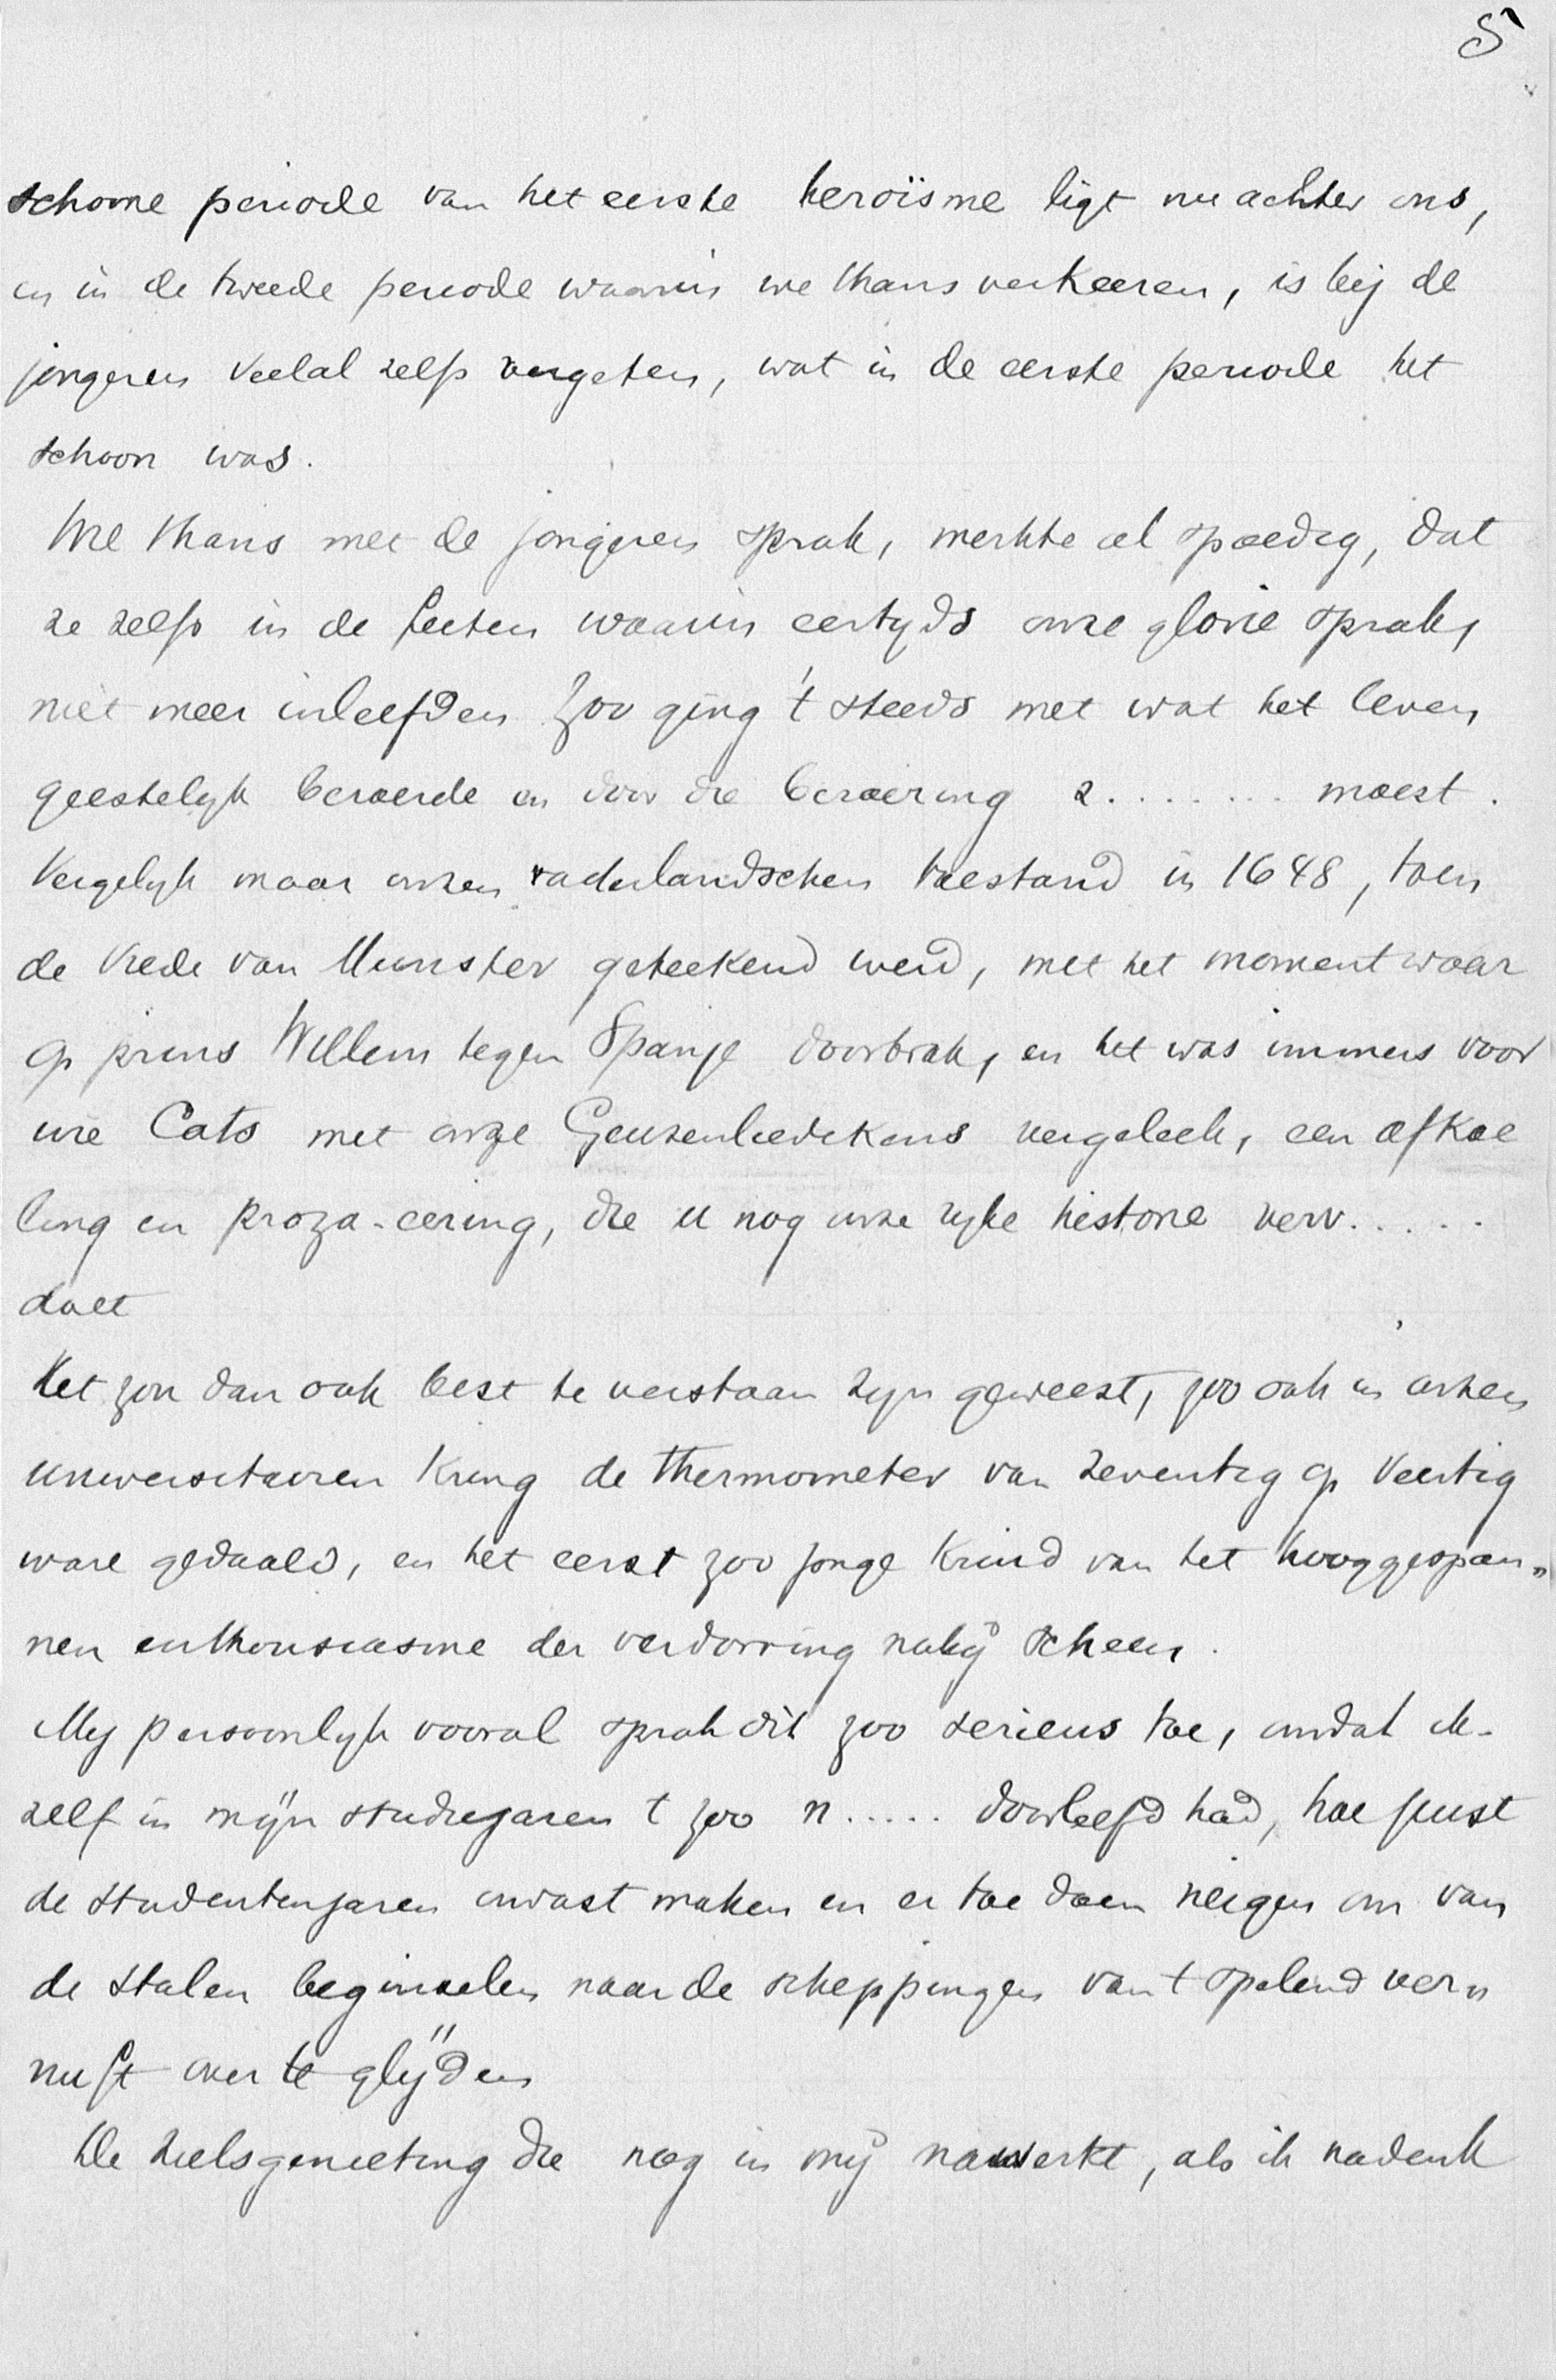 5
schoone periode van het eerste heroïsme ligt nu achter ons,
en in de tweede periode waarin we thans verkeeren, is bij de
jongeren veelal zelfs vergeten, wat in de eerste periode het
schoon was.
Wie thans met de jongeren sprak, merkte al spoedig, dat
ze zelfs in de feiten waarin eertyds onze glorie sprak,
niet meer inleefden Zoo ging 't steeds met wat het leven
geestelyk beroerde en door die beroering z........ moest.
Vergelyk maar onzen vaderlandschen toestand in 1648, toen
de Vrede van Munster geteekend werd, met het moment waar
op prins Willem tegen Spanje doorbrak, en het was immers voor
wie Cats met onze Geuzenliedekens vergeleek, een afkoe
ling en proza-eering, die u nog onze ryke historie verv.....
doet
Het zou dan ook best te verstaan zyn geweest, zoo ook in onzen
universitairen Kring de thermometer van zeventig op veertig
ware gedaald, en het eerst zoo jonge Kruid van het hooggespan„
nen enthousiasme der verdorring naby scheen.
My persoonlyk vooral sprak dit zoo serieus toe, omdat ik-
zelf in mÿn studiejaren t zoo n..... doorleefd had, hoe juist
de studentenjaren onvast maken en er toe doen neigen om van
de stalen beginselen naar de scheppingen van t spelend ver„
nuft over te glÿden
De zielsgenieting die nog in mij nawerkt, als ik nadenk